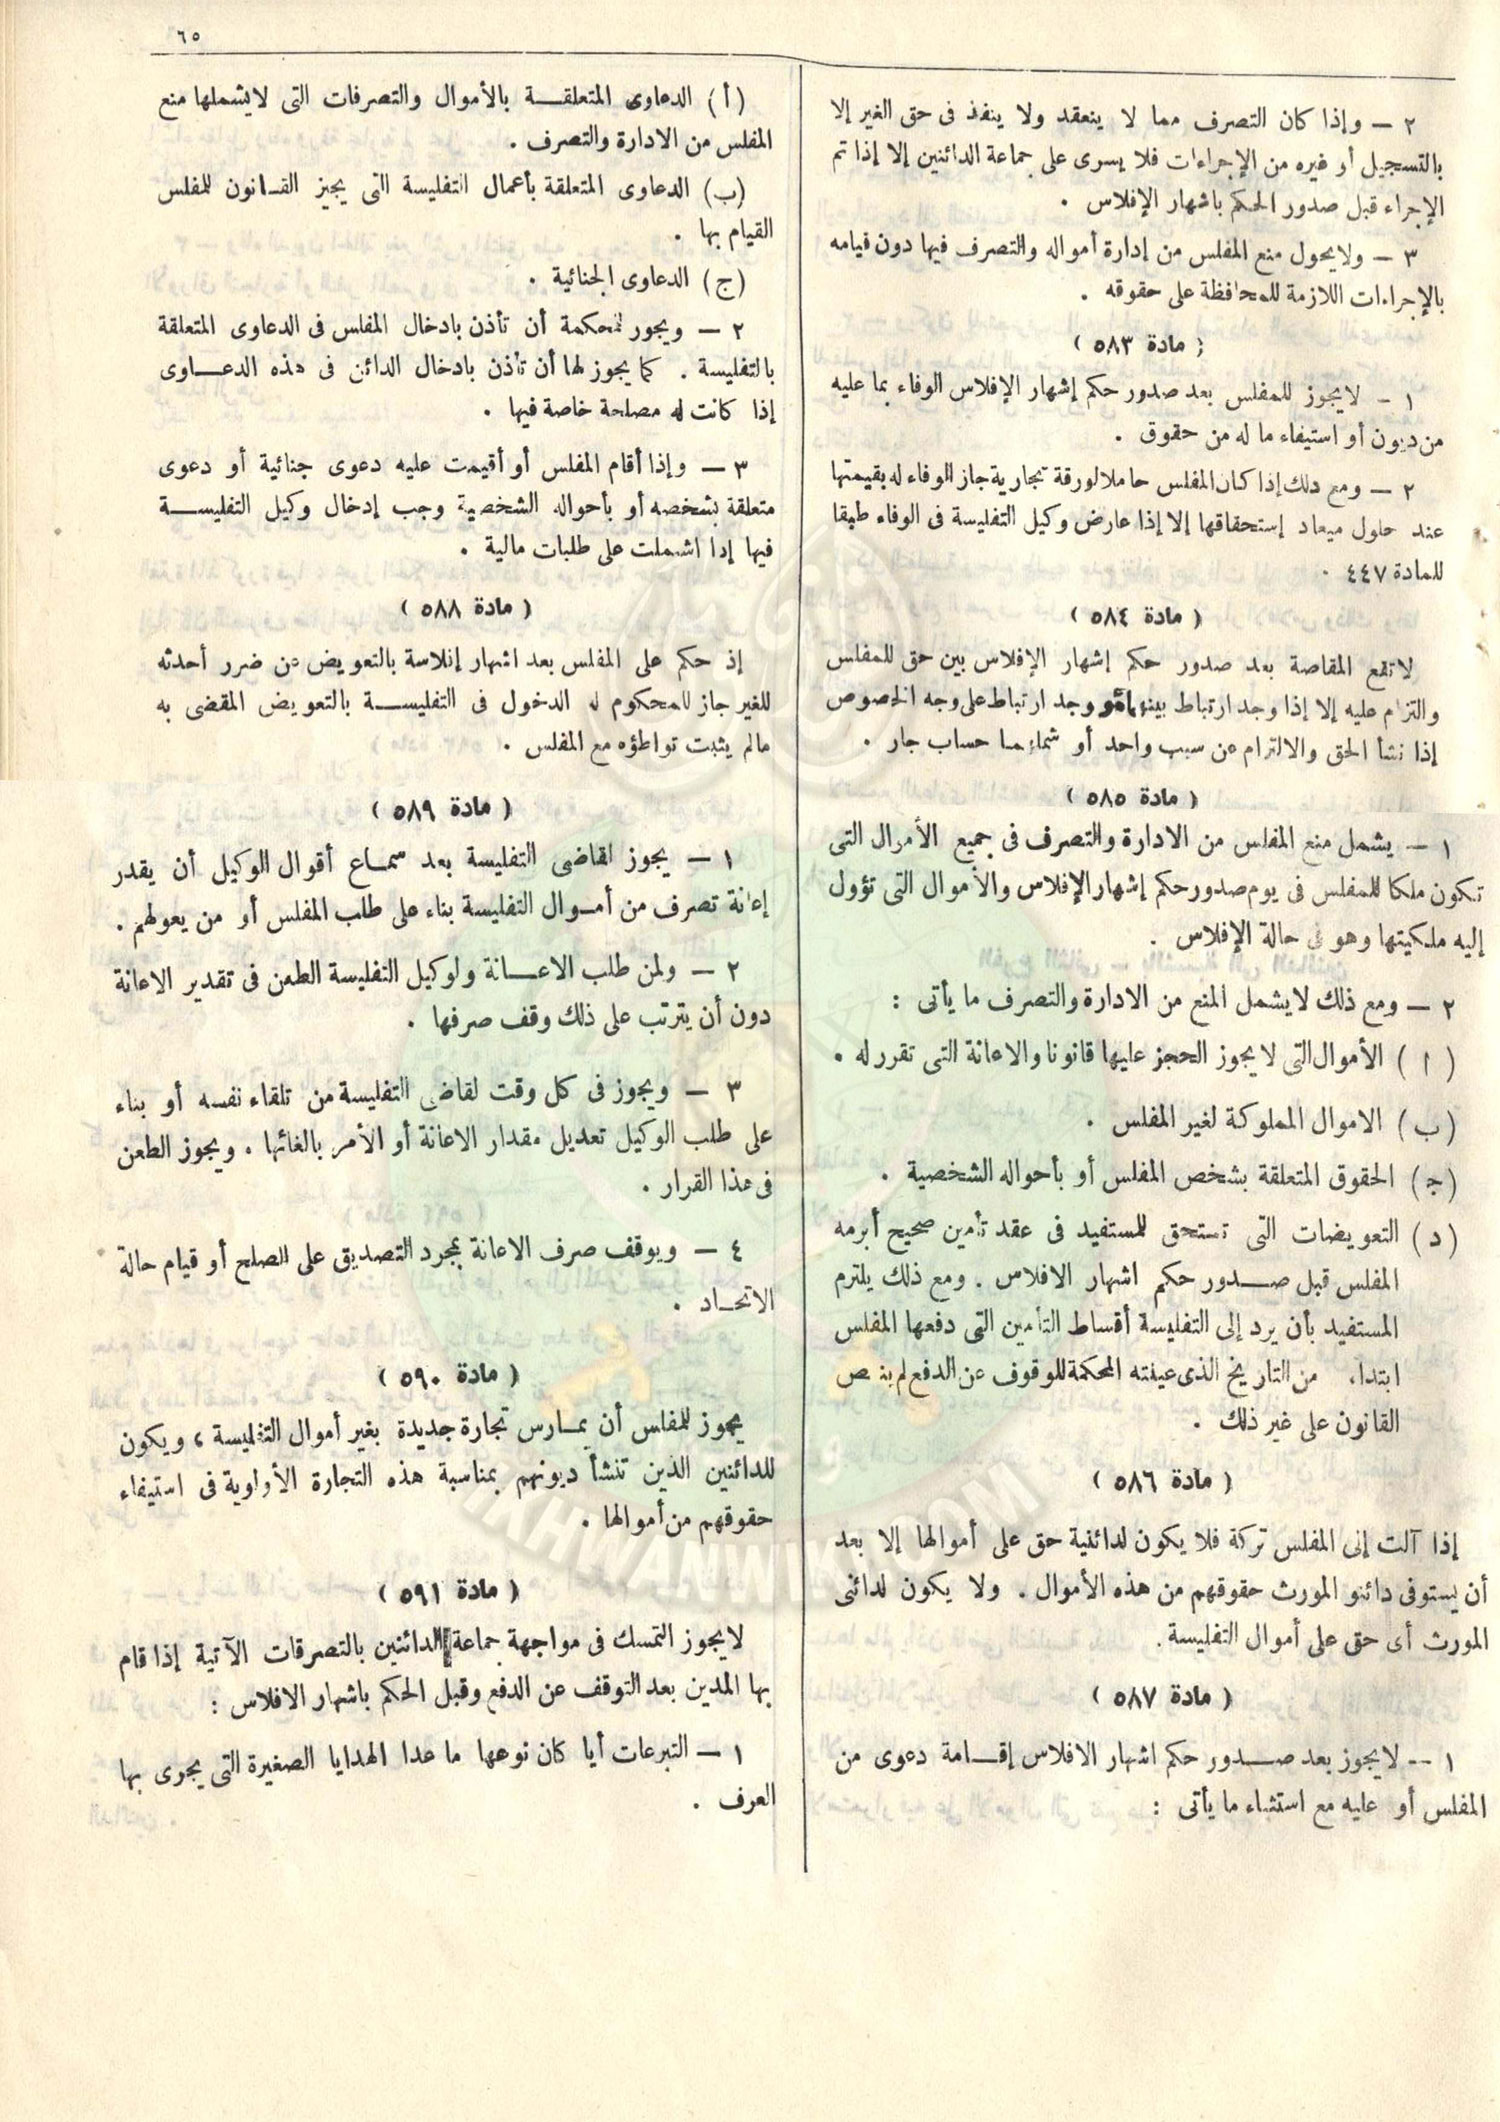 ٦٥
٢ — وإذا كان التصرف مما لا ينعقد ولا ينفذ فى حق الغير إلا
بالتسجيل أو غيره من الإجراءات فلا يسرى على جماعة الدائنين إلا إذا تم
الإجراء قبل صدور الحكم باشهار الإفلاس .
٣ — ولا يحول منع المفلس من إدارة أمواله والتصرف فيها دون قيامه
بالإجراءات اللازمة للمحافظة على حقوقه .
( مادة ٥٨٣ )
١ - لا يجوز للمفلس بعد صدور حكم إشهار الإفلاس الوفاء بما عليه
من ديون أو استيفاء ما له من حقوق .
٢ — ومع ذلك إذا كان المفلس حاملا لورقة تجارية جاز الوفاء له بقيمتها
عند حلول ميعاد إستحقاقها إلا إذا عارض وكيل التفليسة فى الوفاء طبقا
للمادة ٤٤٧ .
( مادة ٥٨٤ )
لا تقع المقاصة بعد صدور حكم إشهار الإفلاس بين حق للمفلس
والتزام عليه إلا إذا وجد ارتباط بينهما ووجد ارتباط على وجه الخصوص
إذا نشأ الحق والالتزام عن سبب واحد أو شملهما حساب جار .
( مادة ٥٨٥ )
١ — يشمل منع المفلس من الادارة والتصرف فى جميع الأموال التى
تكون ملكا للمفلس فى يوم صدور حكم إشهار الإفلاس والأموال التى تؤول
إليه ملكيتها وهو فى حالة الإفلاس .
٢ — ومع ذلك لا يشمل المنع من الادارة والتصرف ما يأتى :
( ا ) الأموال التى لا يجوز الحجز عليها قانونا والاعانة التى تقرر له .
(ب) الاموال المملوكة لغير المفلس .
(ج) الحقوق المتعلقة بشخص المفلس أو بأحواله الشخصية .
(د) التعويضات التى تستحق للمستفيد فى عقد تأمين صحيح أبرمه
المفلس قبل صدور حكم اشهار الافلاس . ومع ذلك يلتزم
المستفيد بأن يرد إلى التفليسة أقساط التأمين التى دفعها المفلس
ابتداء من التاريخ الذى عينته المحكمة للوقوف عن الدفع لم ينص
القانون على غير ذلك .
( مادة ٥٨٦ )
إذا آلت إلى المفلس تركة فلا يكون لدائنية حق على أموالها إلا بعد
أن يستوفى دائنو المورث حقوقهم من هذه الأموال . ولا يكون لدائنى
المورث أى حق على أموال التفليسة .
( مادة ٥٨٧ )
١ -- لا يجوز بعد صدور حكم اشهار الافلاس إقامة دعوى من
المفلس أو عليه مع استثناء ما يأتى :
(أ) الدعاوى المتعلقة بالأموال والتصرفات التى لا يشملها منع
المفلس من الادارة والتصرف .
(ب) الدعاوى المتعلقة بأعمال التفليسة التى يجيز القانون للمفلس
القيام بها .
(ج) الدعاوى الجنائية .
٢ — ويجوز للمحكمة أن تأذن بادخال المفلس فى الدعاوى المتعلقة
بالتفليسة . كما يجوز لها أن تأذن بادخال الدائن فى هذه الدعاوى
إذا كانت له مصلحة خاصة فيها .
٣ — وإذا أقام المفلس أو أقيمت عليه دعوى جنائية أو دعوى
متعلقة بشخصه أو بأحواله الشخصية وجب إدخال وكيل التفليسة
فيها إذا اشملت على طلبات مالية .
( مادة ٥٨٨ )
إذ حكم على المفلس بعد اشهار إفلاسة بالتعويض عن ضرر أحدثه
للغير جاز للمحكوم له الدخول فى التفليسة بالتعويض المقضى به
مالم يثبت تواطؤه مع المفلس .
( مادة ٥٨٩ )
١ — يجوز لقاضى التفليسة بعد سماع أقوال الوكيل أن يقدر
إعانة تصرف من أموال التفليسة بناء على طلب المفلس أو من يعولهم .
٢ — ولمن طلب الاعانة ولوكيل التفليسة الطعن فى تقدير الاعانة
دون أن يترتب على ذلك وقف صرفها .
٣ — ويجوز فى كل وقت لقاضى التفليسة من تلقاء نفسه أو بناء
على طلب الوكيل تعديل مقدار الاعانة أو الأمر بالغائها . ويجوز الطعن
فى هذا القرار .
٤ — ويوقف صرف الاعانة بمجرد التصديق على الصلح أو قيام حالة
الاتحاد .
( مادة ٥٩٠ )
يجوز للمفلس أن يمارس تجارة جديدة بغير أموال التفليسة ، ويكون
للدائنين الذين تنشأ ديونهم بمناسبة هذه التجارة الأولوية فى استيفاء
حقوقهم من أموالها .
( مادة ٥٩١ )
لا يجوز التمسك فى مواجهة جماعة الدائنين بالتصرفات الآتية إذا قام
بها المدين بعد التوقف عن الدفع وقبل الحكم باشهار الافلاس :
١ — التبرعات أيا كان نوعها ما عدا الهدايا الصغيرة التى يجرى بها
العرف .